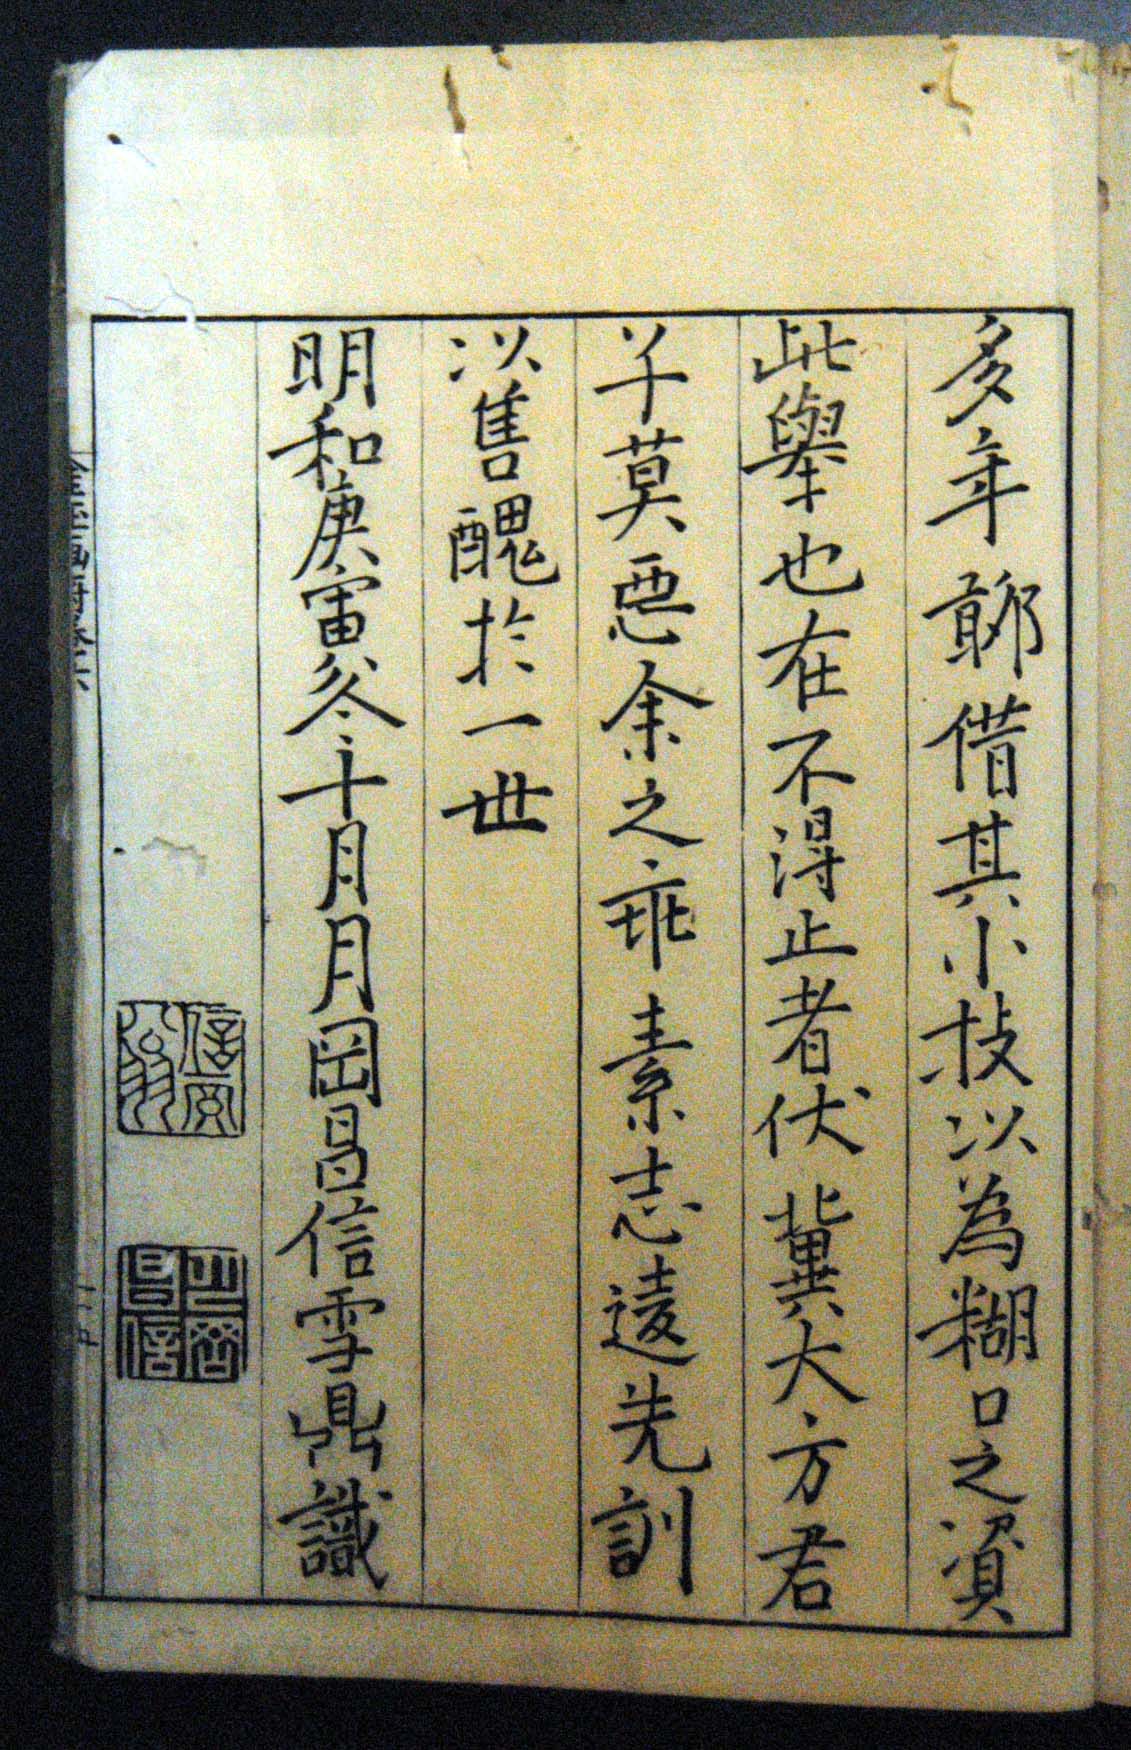 多年聊借其小技以為糊口之資
此擧也在不得止者伏冀大方君
子莫惡余之乖素志逵先訓
以售醜於一世
明和庚寅冬十月月岡昌信雪鼎識
信天翁
昌信